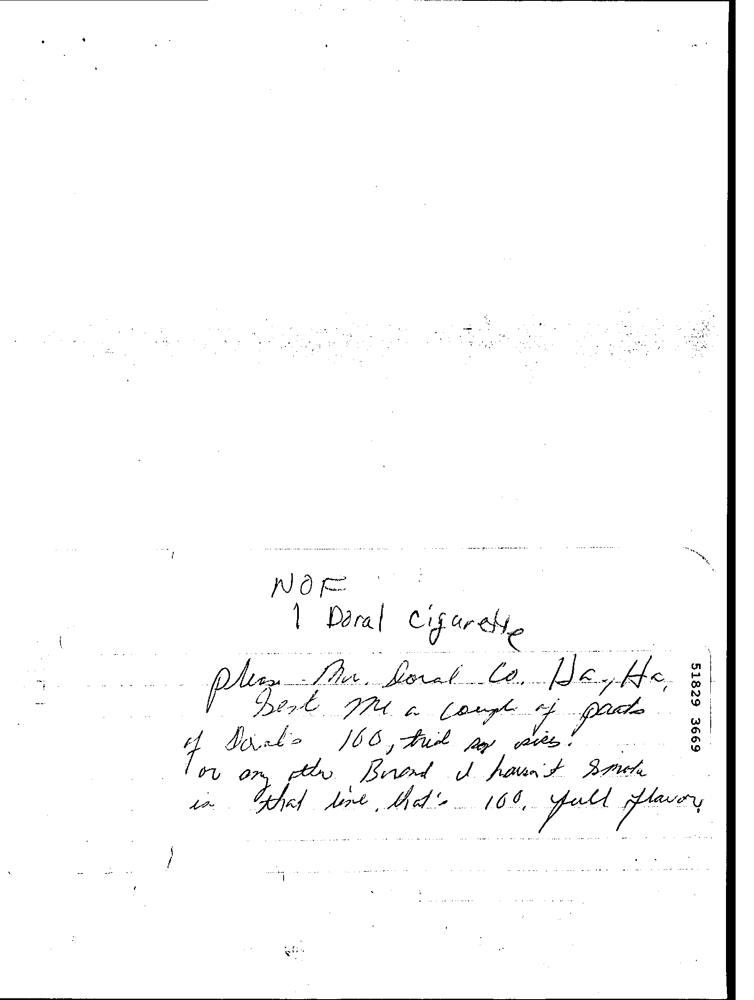 NOF
1 Doral cigarette
please Mr. Doral Co. Ha, Ha,
Sent me a couple of packs
of Doral's 100,
or any other Brand I haven't Smoke
in that line, that's 100, full flavor,
51829 3669